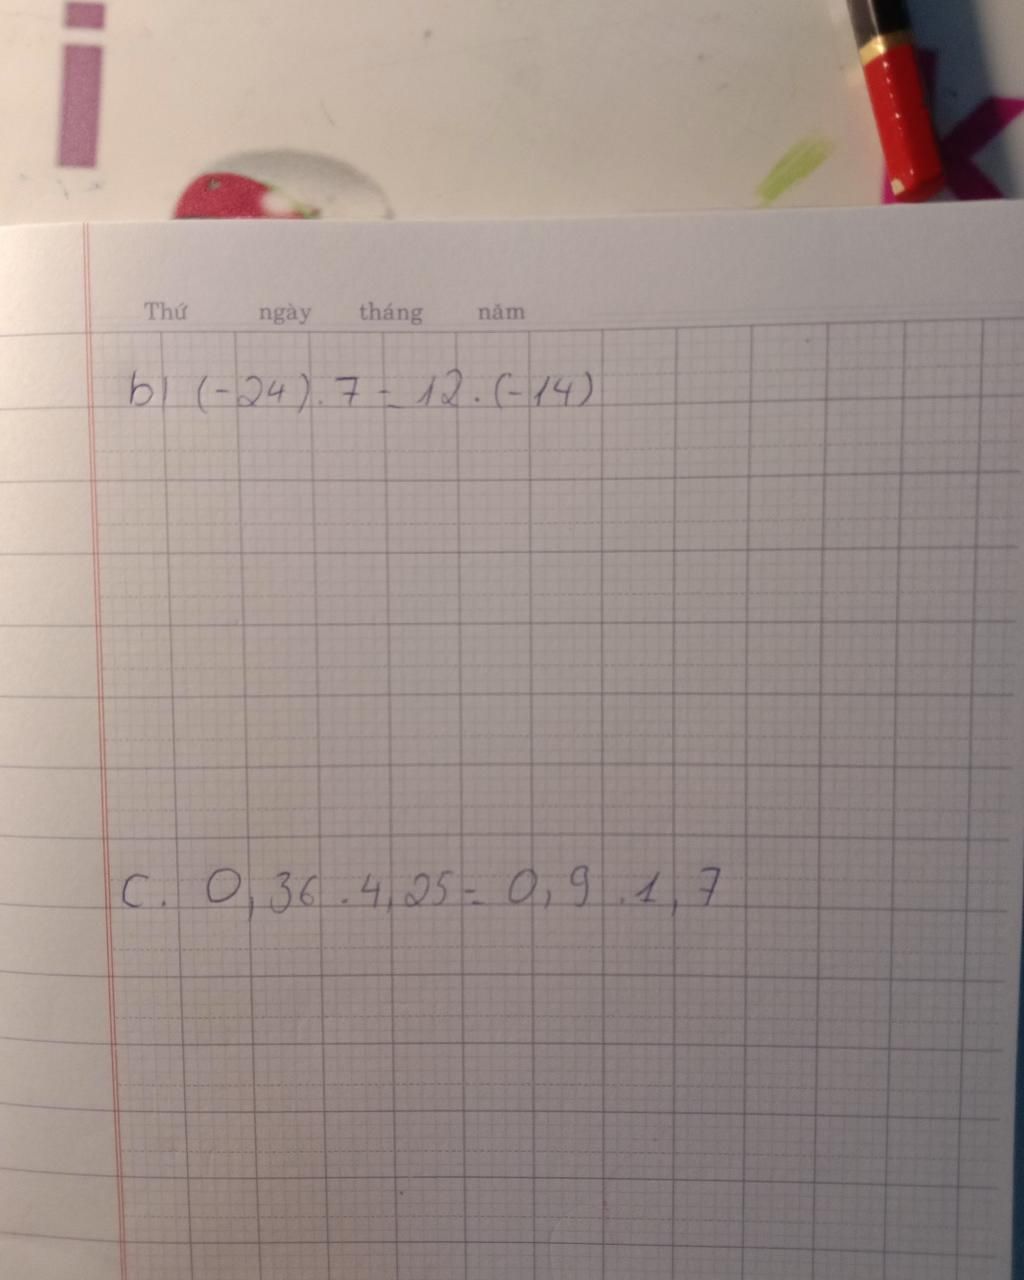 Thứ ngày tháng năm
b) (-24) . 7 = 12 . (-14)
C. 0,36 . 4,25 = 0,9 . 1,7